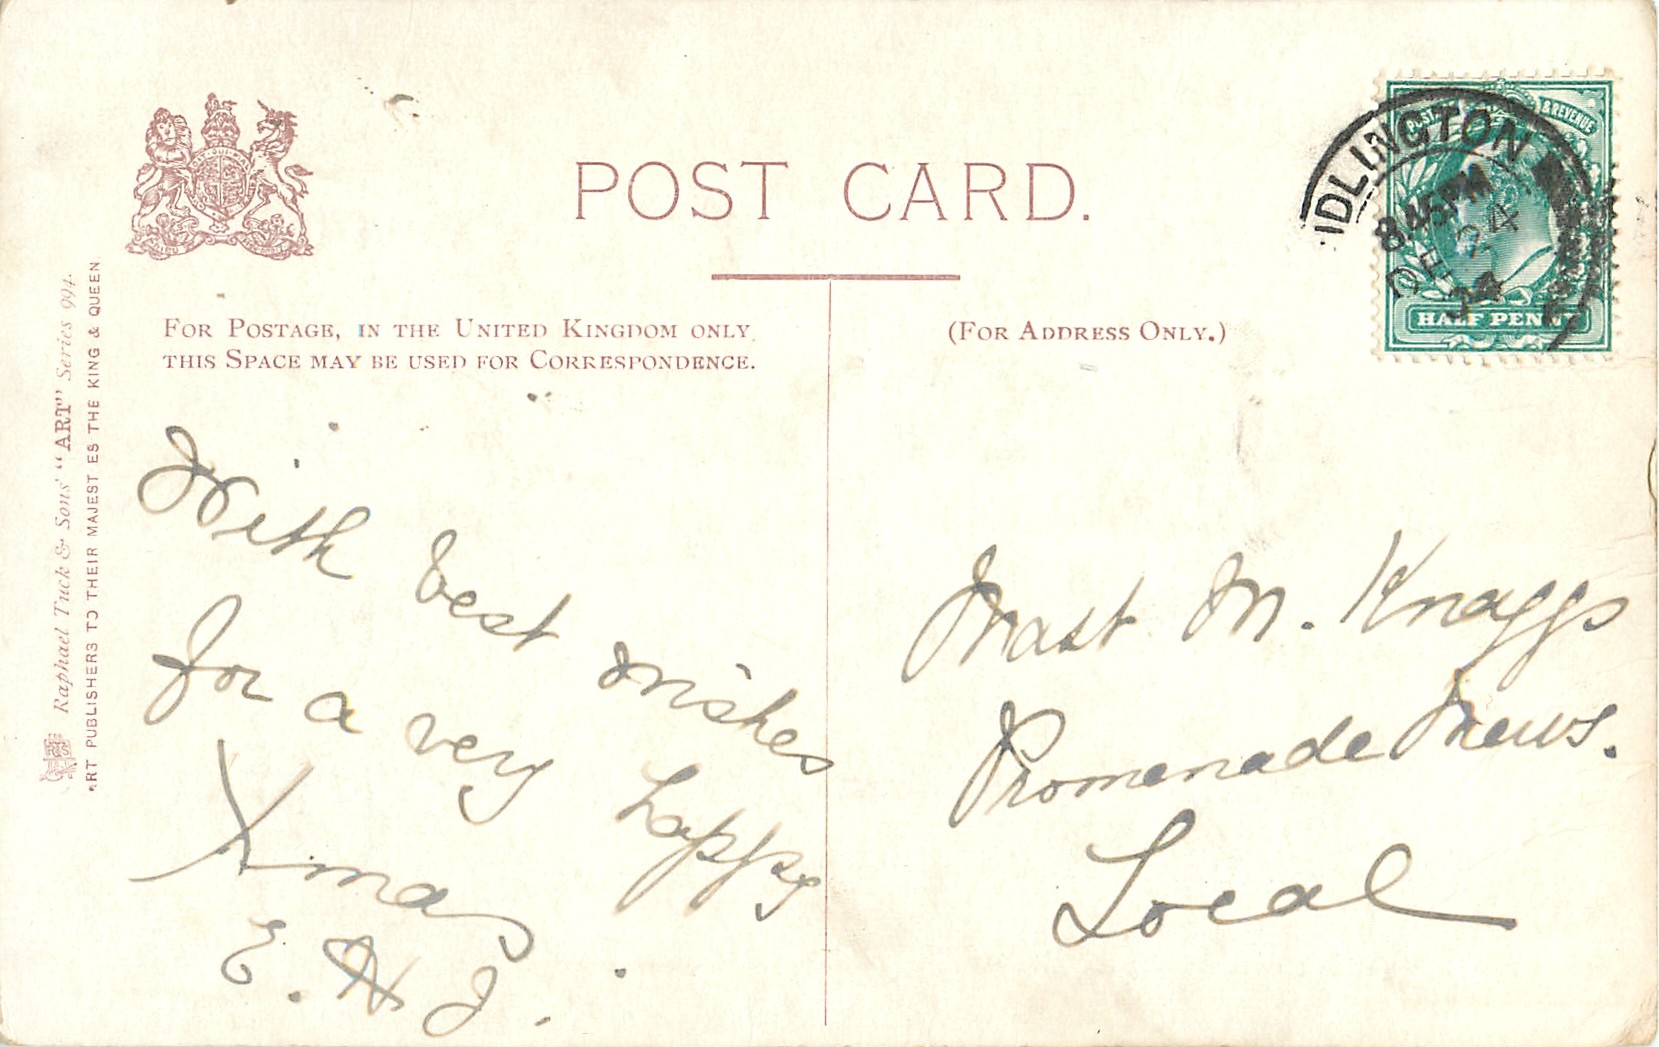 POST CARD.
FOR POSTAGE, IN THE UNITED KINGDOM ONLY,
THIS SPACE MAY BE USED FOR CORRESPONDENCE.
(FOR ADDRESS ONLY.)
POSTAGE & REVENUE
HALF PENNY
IDLINGTON
8.45PM
DE 24
04
Raphael Tuck & Sons' "ART" Series 994.
ART PUBLISHERS TO THEIR MAJESTIES THE KING & QUEEN
With best wishes
for a very happy
Xmas
E. H. J.
Mast M. Knaggs
Promenade Mews.
Local